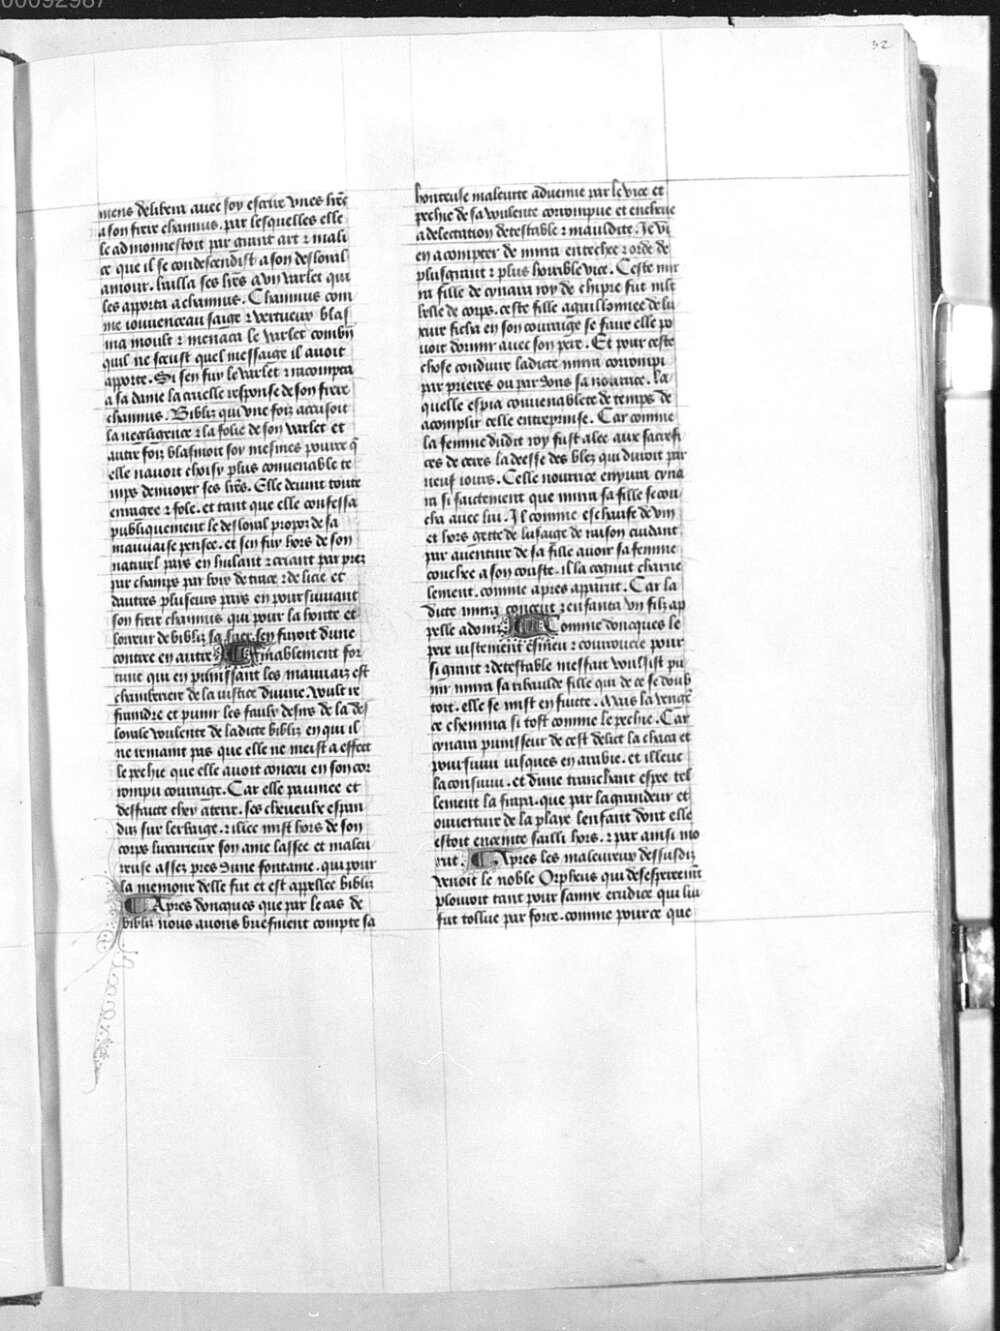 00092987
32
mens delibera avec soy escrire unes lr̄es
a son frere chaunus. par lesquelles elle
le admonnestoit par grant art ⁊ mali
ce que il se condescendist a son desloial
amour. bailla ses lr̄es a un varlet qui
les apporta a chaunus. Chaunus com
me iouvenceau saige ⁊ vertueux blas
ma moult ⁊ menaca le varlet combiē
quil ne sceust quel messaige il avoit
apporte. Si sen fuy le varlet ⁊ racompta
a sa dame la cruelle response de son frere
chaunus. Biblis qui une foiz accusoit
la negligence ⁊ la folie de son varlet et
autre foiz blasmoit soy mesmes pource q̄
elle navoit choisy plus convenable te
mps denvoyer ses lr̄es. Elle devint toute
enragee ⁊ fole. et tant que elle confessa
publiquement le desloial propoz de sa
mauvaise pensee. et sen fuy hors de son
naturel pays en hulant ⁊ criant par prez
par champs par boys de trace ⁊ de licie et
dautres pluseurs pays en poursuivant
son frere chaunus qui pour la honte et
lorreur de biblis sa suer sen fuyoit dune
contree en autre Amablement for
tune qui en punissant les mauvaiz est
chamberiere de la iustice divine. voult re
fraindre et punir les faulx desirs de la des
loiale voulente de ladicte biblis en qui il
ne remaint pas que elle ne meist a effect
le pechie que elle avoit conceu en son cor
rompu couraige. Car elle paumee et
deffaicte chey a terre. ses cheveulx espan
duz sur lerbaige. ⁊ illec mist hors de son
corps luxurieux son ame lassee et maleu
reuse assez pres dune fontaine. qui pour
la memoire delle fut et est appellee biblis
Apres doncques que par le cas de
biblis nous avons briefment compte sa
honteuse maleurte advenue par le vice et
pechie de sa voulente corrompue et encline
a delectation detestable ⁊ mauldite. Je vi
en a compter de mirra entechee ⁊ orde de
plus grant ⁊ plus horrible vice. Ceste mir
ra fille de cynara roy de chipre fut mlt̄
belle de corps. ceste fille aguillonnee de lu
xure ficha en son couraige se faire elle po
voit dormir avec son pere. Et pour ceste
chose conduire ladicte mirra corrompi
par prieres ou par dons sa nourrice. la
quelle espia convenablete de temps de
acomplir celle entreprinse. Car comme
la femme dudit roy fust alee aux sacrefi
ces de ceres la deesse des blez qui duroit par
neuf iours. Celle nourrice enyvra cyna
ra si faictement que mirra sa fille se cou
cha avec lui. Il comme eschaufe de vin
et hors gette de lusaige de raison cuidant
par aventure de sa fille avoir sa femme
couchee a son couste. il la cognut charne
lement. comme apres apparut. Car la
dicte mirra conceut ⁊ enfanta un filz ap
pelle adonis Comme doncques le
pere iustement esmeu ⁊ courroucie pour
si grant ⁊ detestable messait voulsist pu
nir mirra sa ribaulde fille qui de ce se doub
toit. elle se mist en fuitte. Mais la venge
ce chemina si tost comme le pechie. Car
cynara punisseur de cest delict la chaca et
poursuivi iusques en arabie. et illeuc
la consuivi. et dune tranchant espee tel
lement la frapa. que par la grandeur et
ouverture de la playe lenfant dont elle
estoit enceinte sailli hors. ⁊ par ainsi mo
rut. Apres les maleureux dessusdiz
venoit le noble Orpheus qui desesperemt̄
plouroit tant pour sa femme erudice qui lui
fut tollue par force. comme pource que